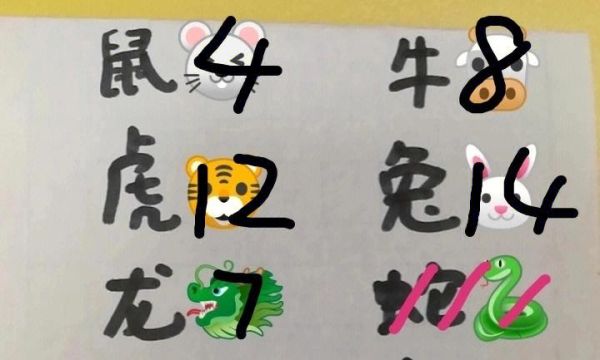 鼠 4 牛 8
虎 12 兔 14
龙 7 蛇